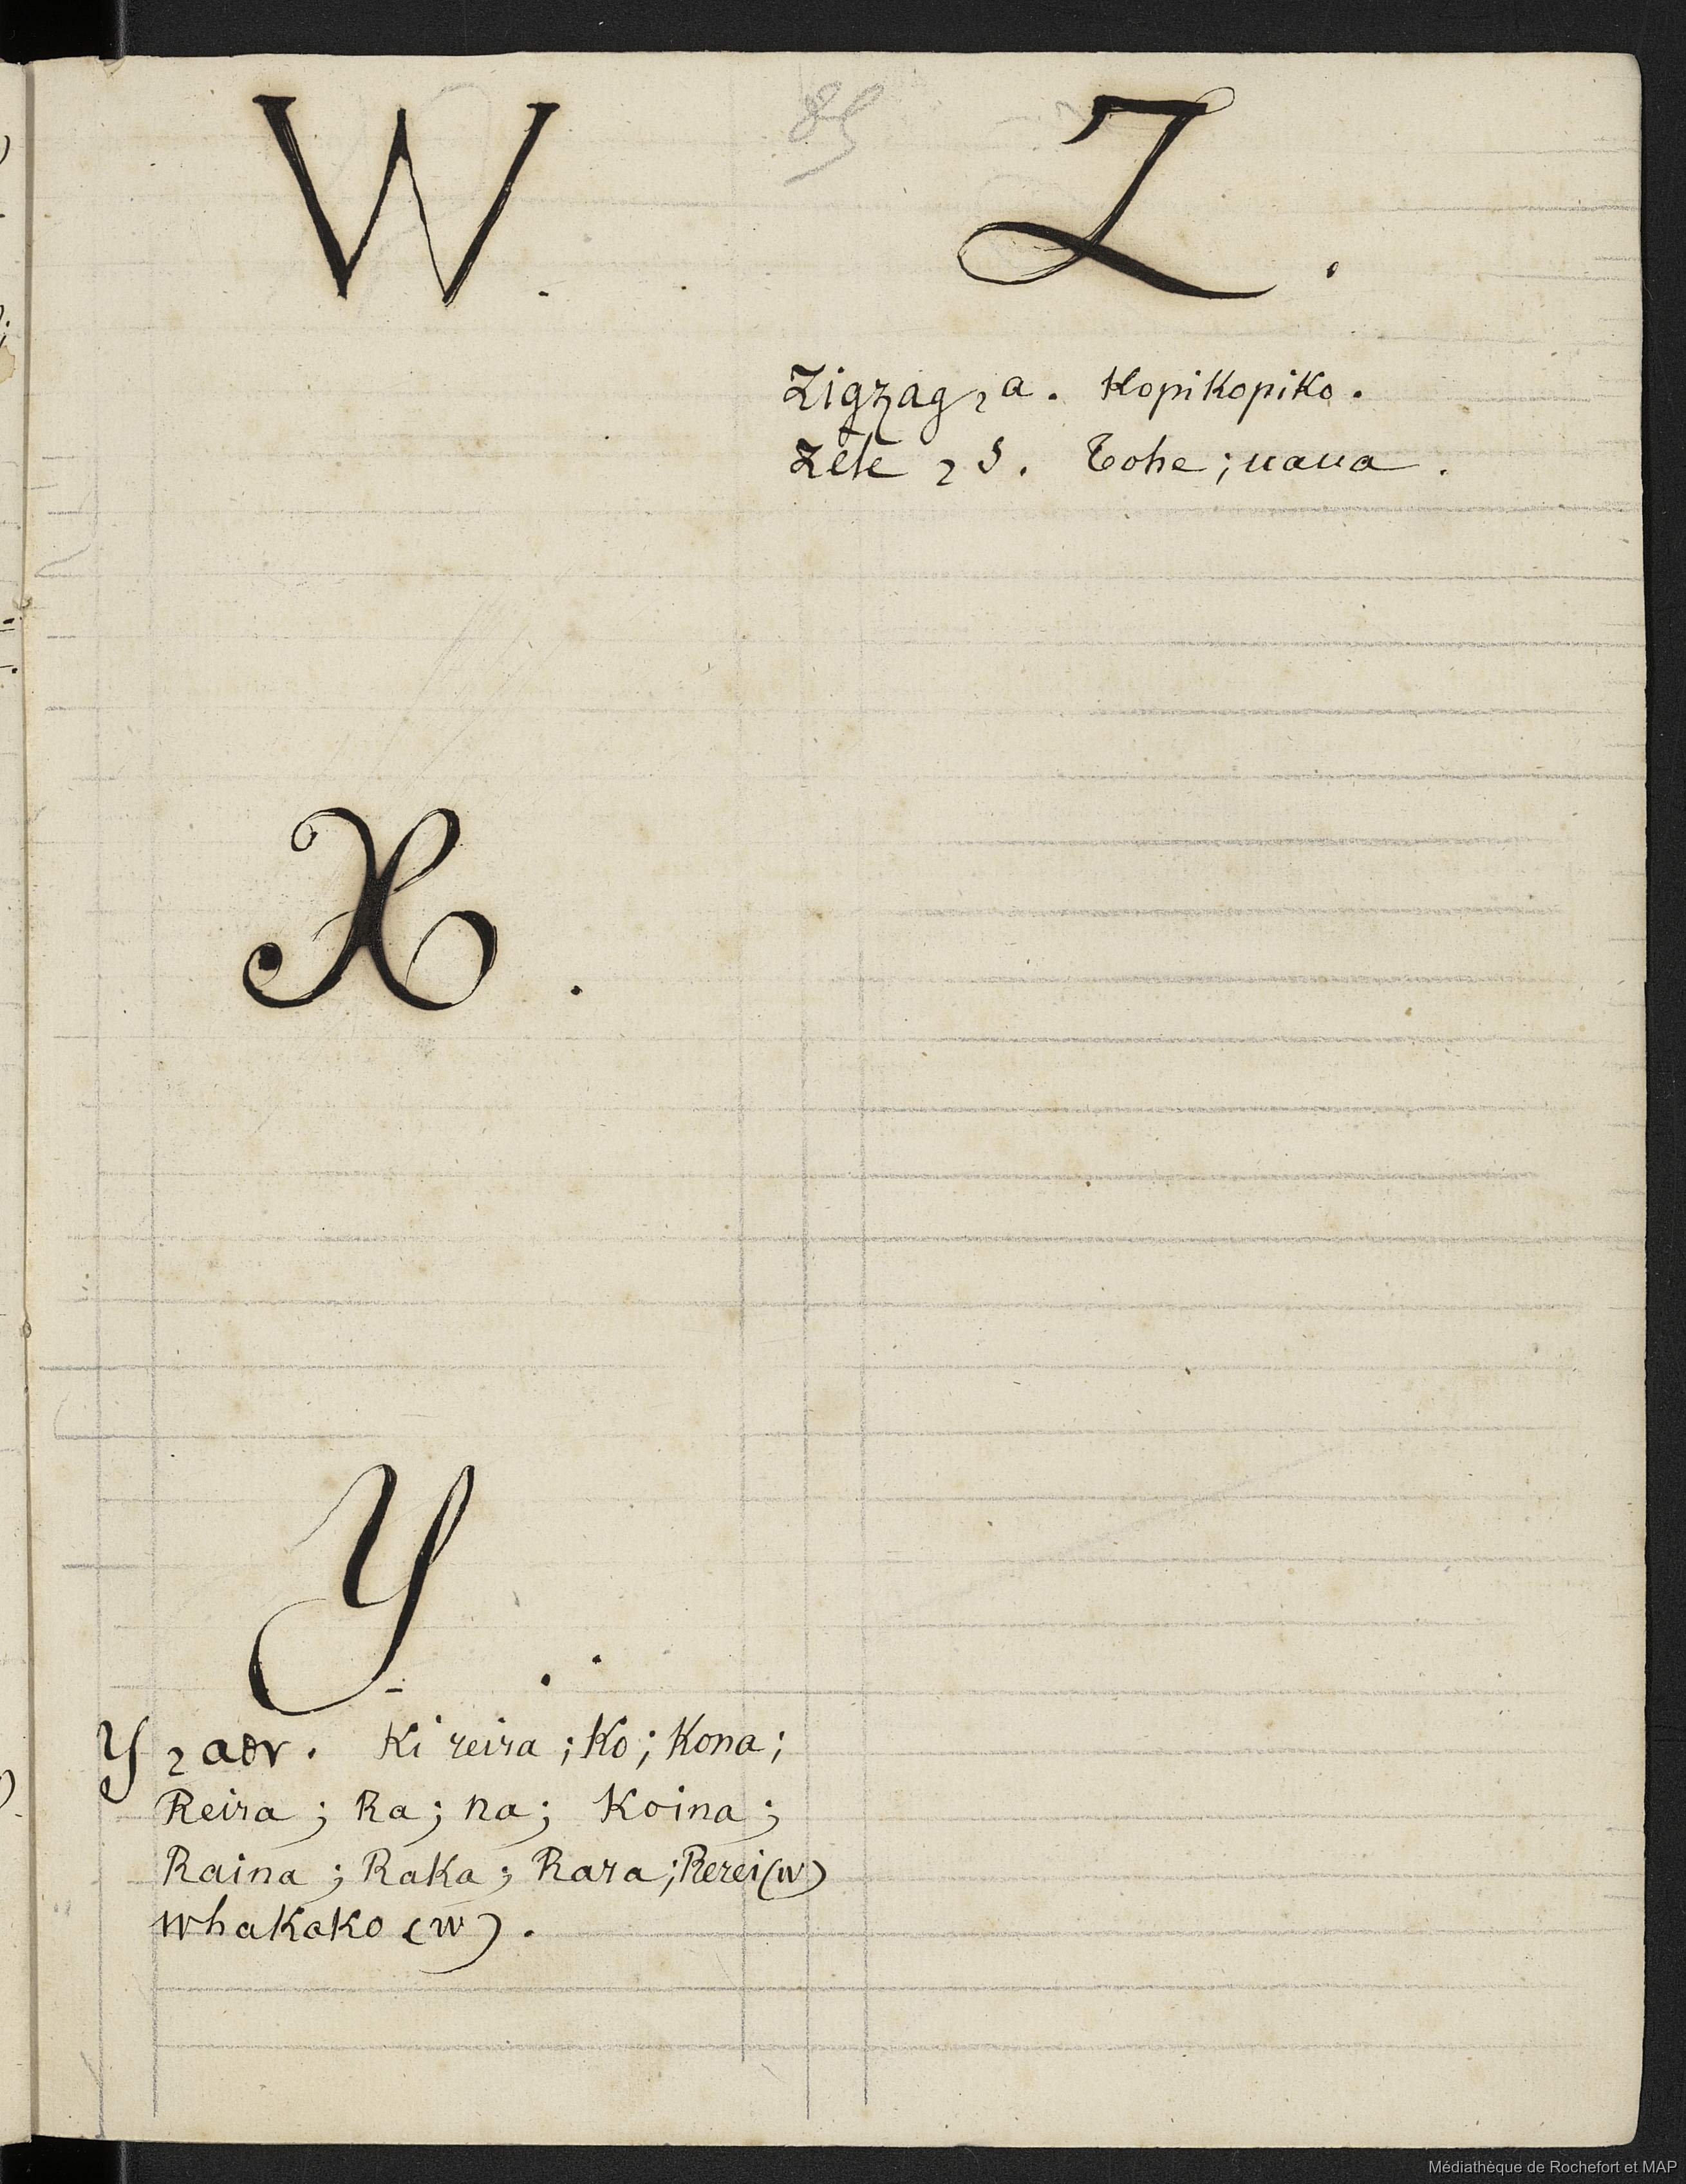 85
W.
X.
Y.
Y, adv. Ki reira; Ko; Kona;
Reira; Ra; na; Koina;
Raina; Raka; Rara; Rerei(w)
whakako (w).
Z.
Zigzag, a. Kopikopiko.
Zèle, s. Tohe; uaua.
Médiathèque de Rochefort et MAP